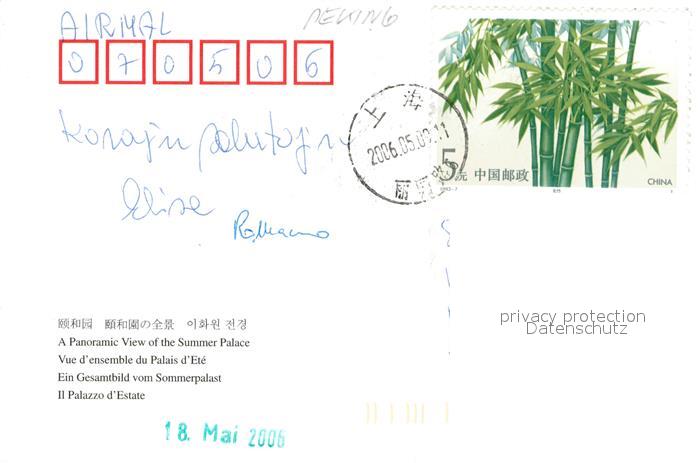 PEKING
AIRMAL
070506
上海
2006.05.09.11
5元 中国邮政
CHINA
Korajn salutojn
Elise
Romano
privacy protection
Datenschutz
颐和园 頤和園の全景 이화원 전경
A Panoramic View of the Summer Palace
Vue d'ensemble du Palais d'Eté
Ein Gesamtbild vom Sommerpalast
Il Palazzo d'Estate
18. Mai 2006